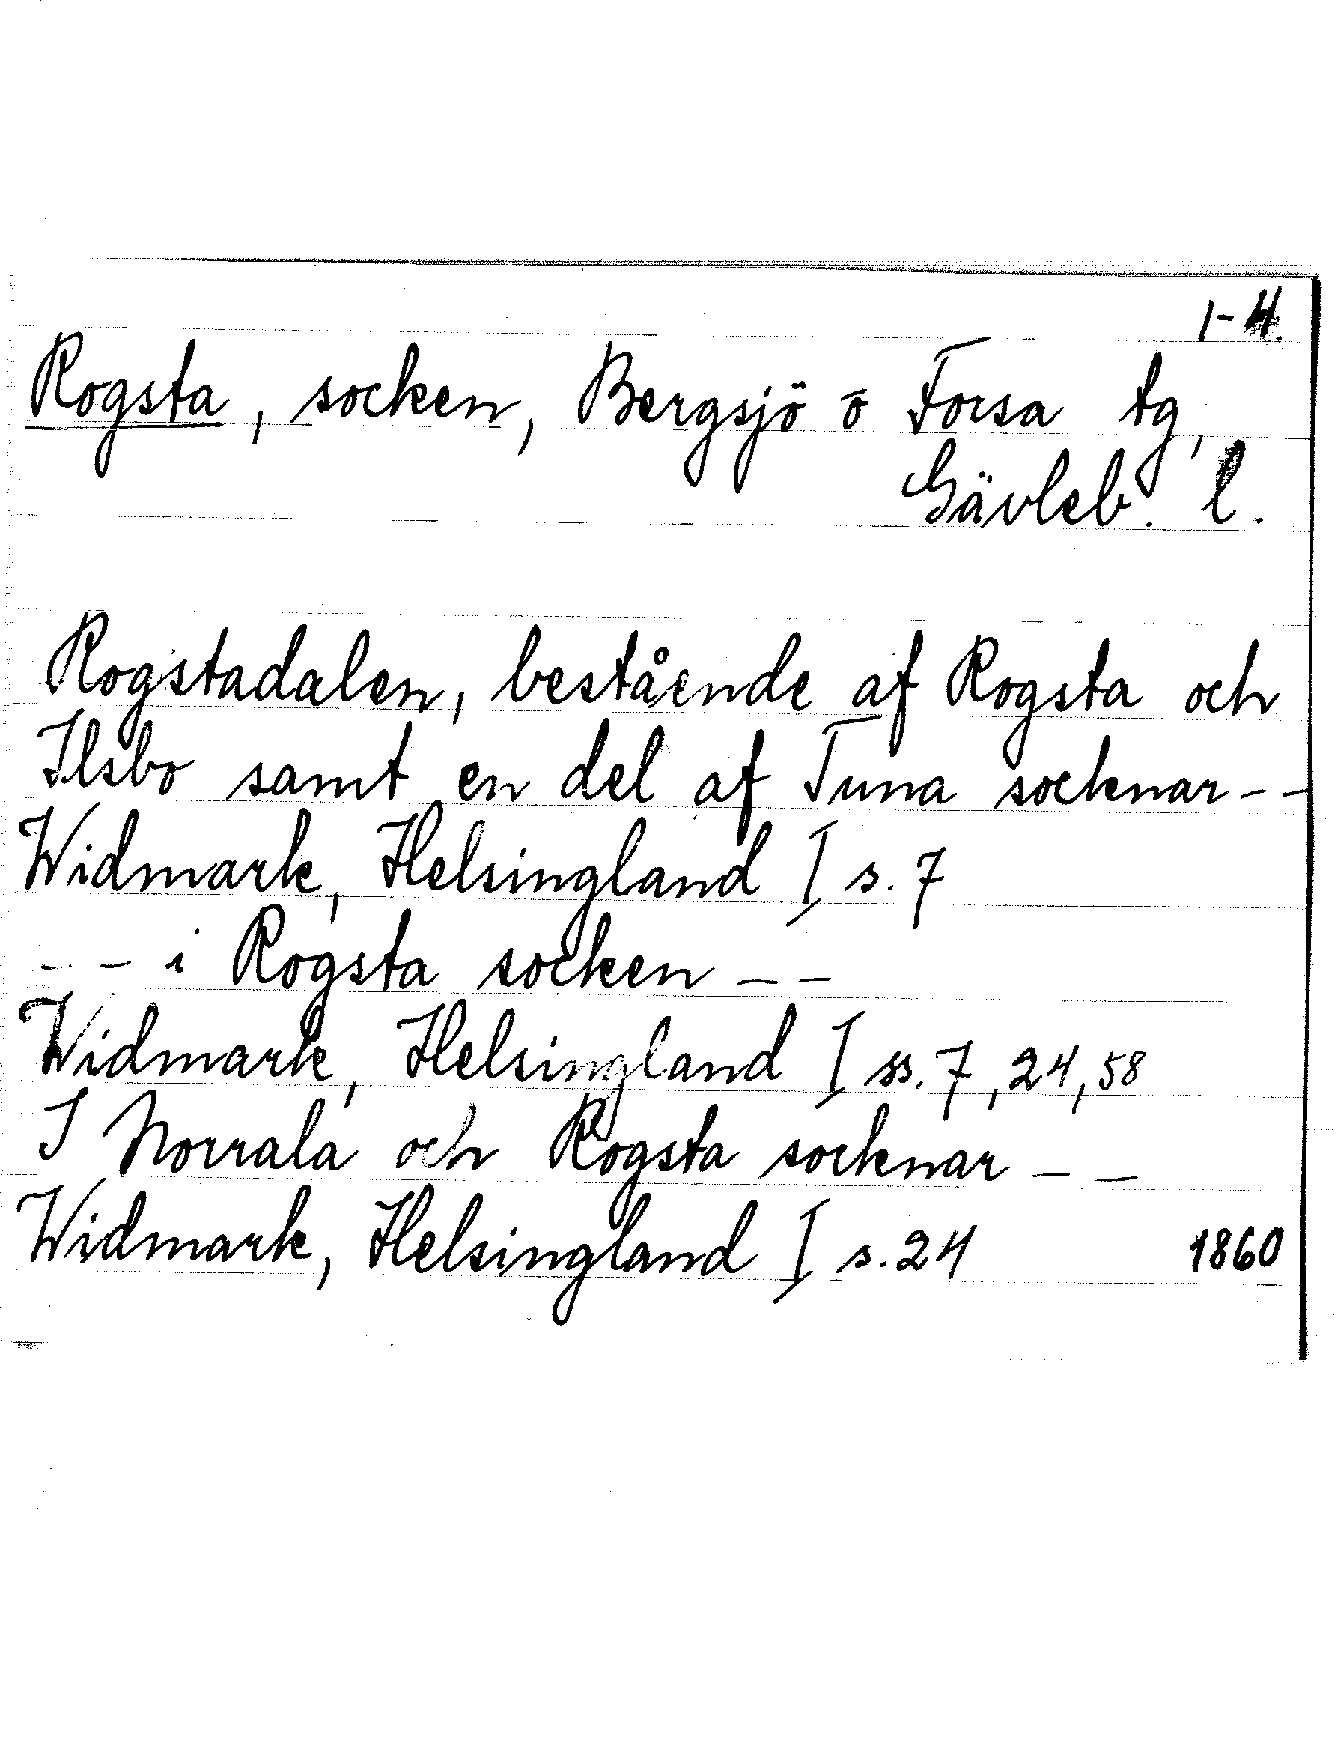 1-4.
Rogsta, socken, Bergsjö o Forsa tg,
Gävleb. l.
Rogstadalen, bestående af Rogsta och
Ilsbo samt en del af Tuna socknar - -
Widmark, Helsingland I s. 7
- - i Rogsta socken - -
Widmark, Helsingland I ss. 7, 24, 58
I Norrala och Rogsta socknar - -
Widmark, Helsingland I s. 24 1860